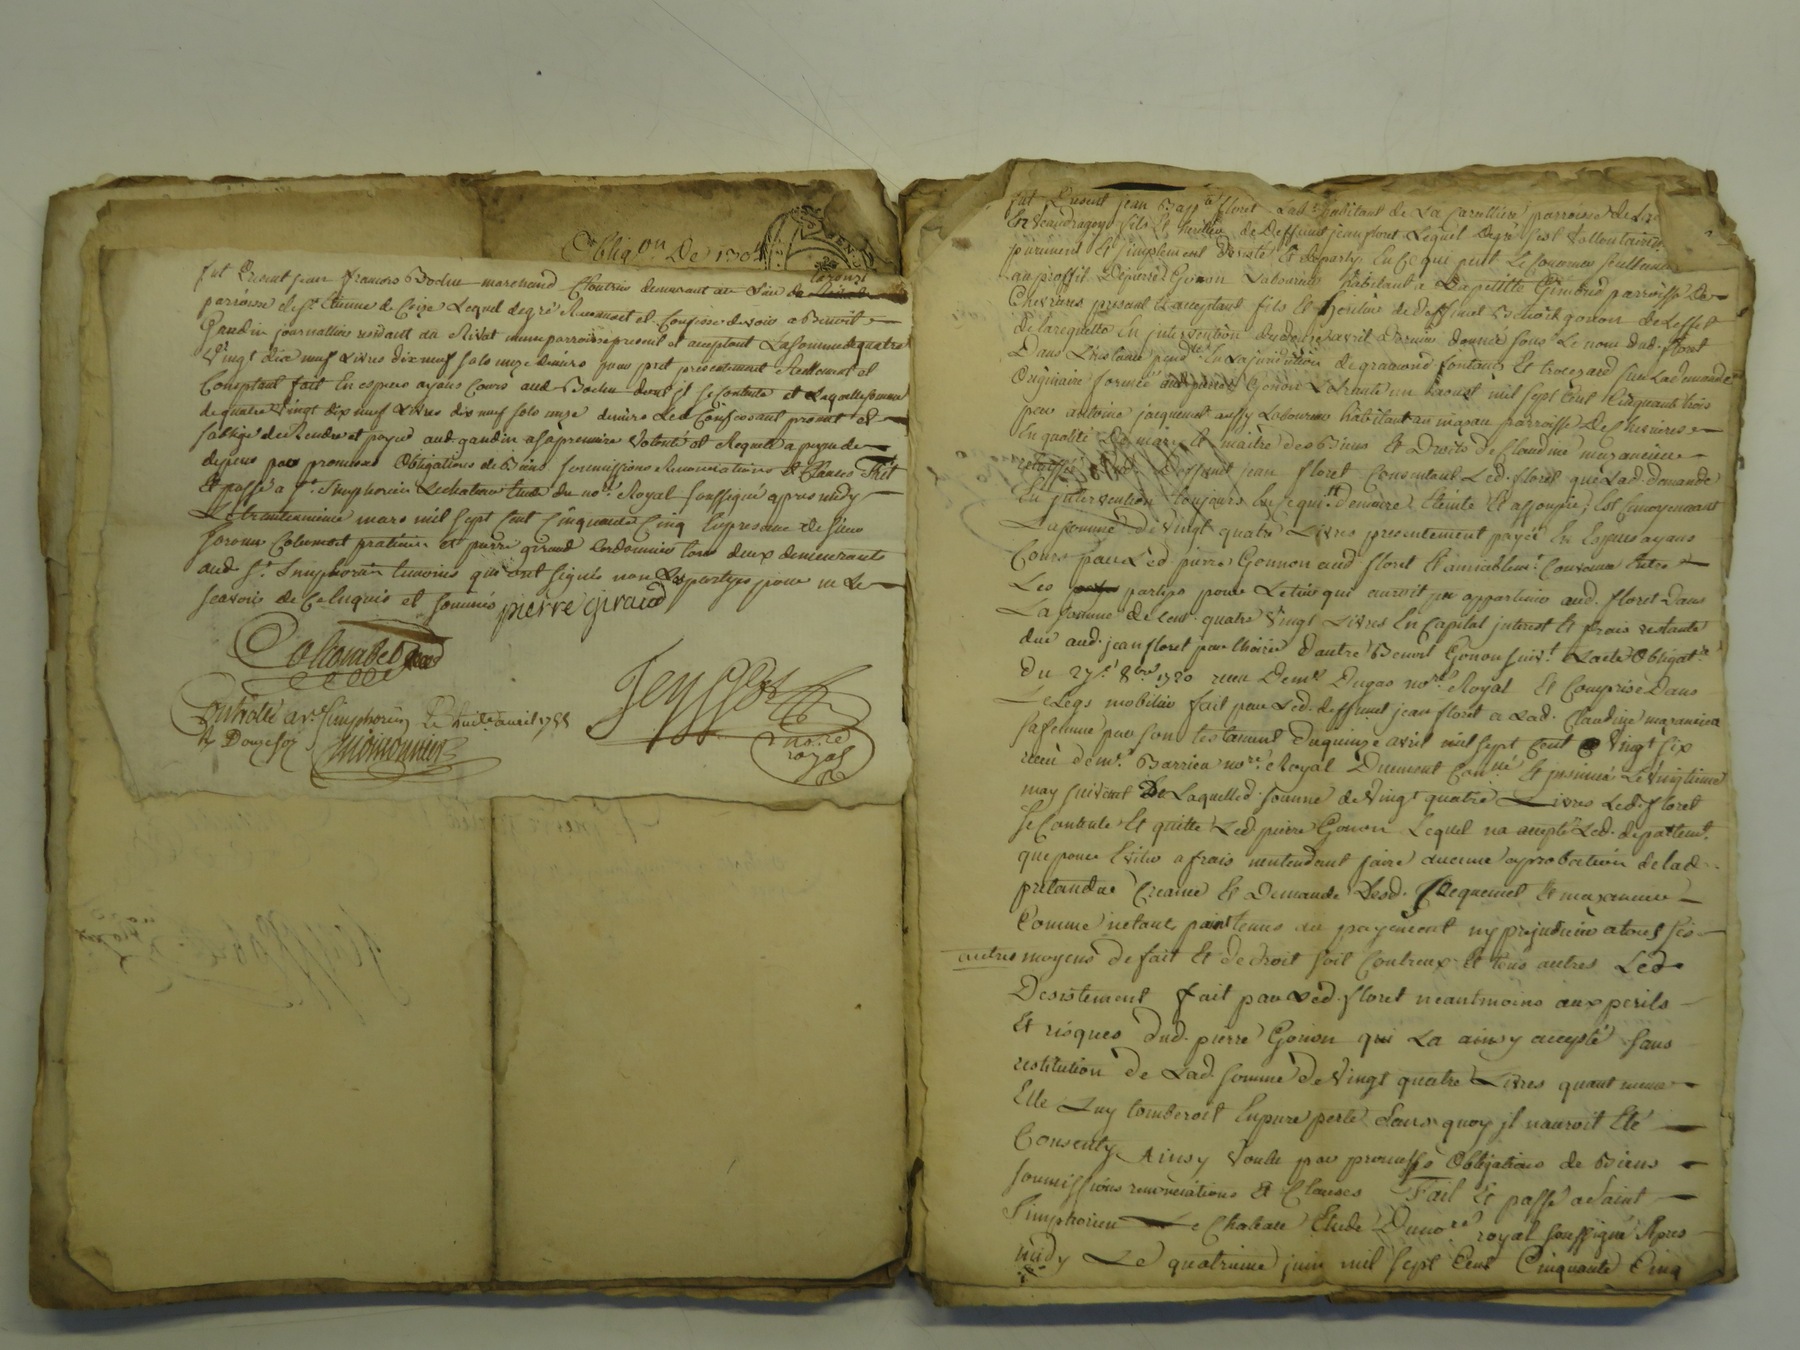 Obligon De 130#
fut Present jean francois Bochu marchand Choutrie demurant au Lieu de
parroisse de st. Etienne de Coise Lequel de gré a Reconnu et Confesse devoir a Benoit
Gaudin journallier residant au Rivat meme parroisse present et acceptant La somme de quatre
Vingt dix neuf Livres dix neuf sols onze deniers pour pret presentement Reellement et
Comptant fait En especes ayant Cours aud. Bochu dont il se Contente et Laquelle somme
de quatre Vingt dix neuf Livres dix neuf sols onze deniers Led. Confessant promet et
soblige de Rendre et payer aud. gaudin a sa premiere Volonté et Requete a peyne de
depens par promesses Obligations de Biens soumissions Renonciations et Clauses Fait
Et passé a st. Simphorien Le chateau Etude du nore. Royal soussigné apres midy
Le trantunieme mars mil sept cent Cinquante Cinq En presence de sieur
Colombet praticien et pierre giraud Cordonnier tous deux demeurants
aud. st. Simphorien temoins qui ont signés non Les partyes pour ne Le
scavoir de Ce Enquis et sommés pierre giraud
Colombet
Controllé a st. Simphorien Le huit avril 1755
R Douze sols
nore
royal
fut Present jean Bapte. floret Labr. habitant de La parroisse de
En fils Et heritier de Deffunt jean floret Lequel De gré s'est Vollontairemt.
purement Et simplement Desisté Et departy En Ce qui peut Le Concerner seullement
au proffit De pierre Gonon Laboureur habitant a La petitte Gimond parroisse De
Chevrieres present Et acceptant fils Et heritier de Deffunt Benoit gonon de Leffet
De la requette En jntervention du avril Dernier donnée sous Le nom dud. floret
Dans Linstance En La jurisdiction de gramond fontanes Et sur La demande
Originaire formée aud. pierre Gonon Le trante un Laoust mil sept Cent Cinquante trois
par antoine jacquemet aussy Laboureur habitant au mazau parroisse De Chevrieres
En qualité De mary Et maitre des Biens Et Droits de Claudine
Deffunt jean floret Consentant Led. floret que Lad. demande
En jntervention toujours En ce demeure Eteinte Et assoupie, Est Cemoyennant
La somme De Vingt quatre Livres presentement payés En Especes ayans
Cours par Led. pierre Gonnon aud. floret Et amiablemt. Convenue Entre
Les partyes pour Le tiers qui auroit pu appartenir aud. floret Dans
La somme de Cent quatre Vingt Livres En Capital jnterest Et frais restante
due aud. jean floret par Lhoirie Dautre Benoit Gonon suivt. Lacte Obligatre.
Du 27e. 8bre 1720 receu De me. Dugas nore. Royal Et Comprise Dans
Le Legs mobilier fait par Led. deffunt jean floret a Lad. Claudine
sa femme par son testament Du quinze avril mil sept Cent Vingt six
receu de me. Barrieu nore. Royal Duement Conllé. Et jnsinué Le Vingtieme
may suivant De Laquelle d. somme de Vingt quatre Livres Led. floret
se Contente Et quitte Led. pierre Gonon Lequel na accepté Led. departemt.
que pour Eviter a frais nentendant faire aucune aprobation de lad.
pretandue Creance Et Demande Desd. Jacquemet Et
Comme netant point tenus au payement ny prejudicier a tous ses
autres moyens de fait Et de droit soit Contreux Et tous autres Led.
Desistement fait par Led. floret neantmoins aux perils
Et risques dud. pierre Gonon qui La ainsy accepté sans
restitution de Lad. somme De Vingt quatre Livres quant meme
Elle Luy tomberoit En pure perte sans quoy jl nauroit Eté
Consenty Ainsy Voulu par promesses Obligations de Biens
soumissions renonciations Et Clauses Fait Et passé a Saint
Simphorien Le Chateau Etude Du nore. royal soussigné Apres
midy Le quatrieme juin mil sept Cent Cinquante Cinq